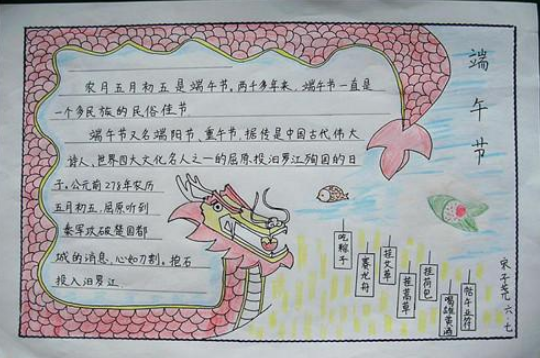 农月五月初五是端午节,两千多年来,端午节一直是
一个多民族的民俗佳节
端午节又名端阳节、重午节,据传是中国古代伟大
诗人、世界四大文化名人之一的屈原,投汨罗江殉国的日
子,公元前278年农历
五月初五,屈原听到
秦军攻破楚国都
城的消息、心如刀割,抱石
投入汨罗江.
端午节
吃粽子
赛龙舟
挂艾草
挂菖草
挂荷包
喝雄黄酒
帖午业符
六.七